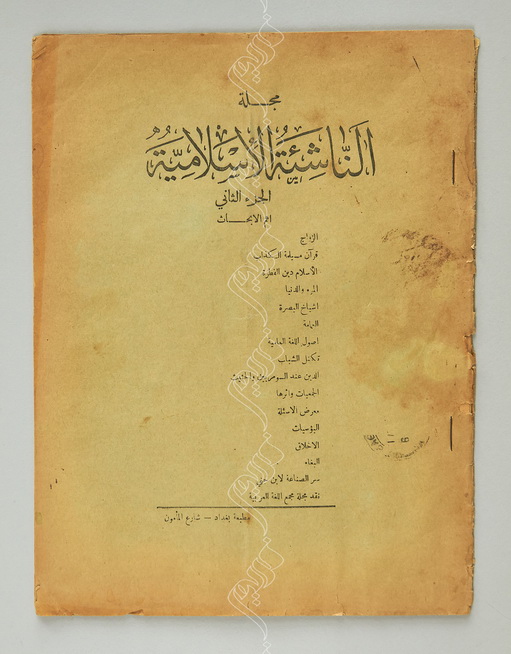 مجلة
النَّاشِئَةُ الْإِسْلَامِيَّةُ
الجزء الثاني
اهم الابحاث
الزواج
قرآن مسيلمة الكذاب
الاسلام دين الفطرة
المرء والدنيا
اشياخ البصرة
العمامة
اصول اللغة العامية
تكتل الشباب
الدين عند السومريين
الجمعيات واثرها
معرض الاسئلة
البؤسيات
الاخلاق
البغاء
سر الصناعة لابن جني
نقد مجلة مجمع اللغة العربية
مطبعة بغداد — شارع المأمون